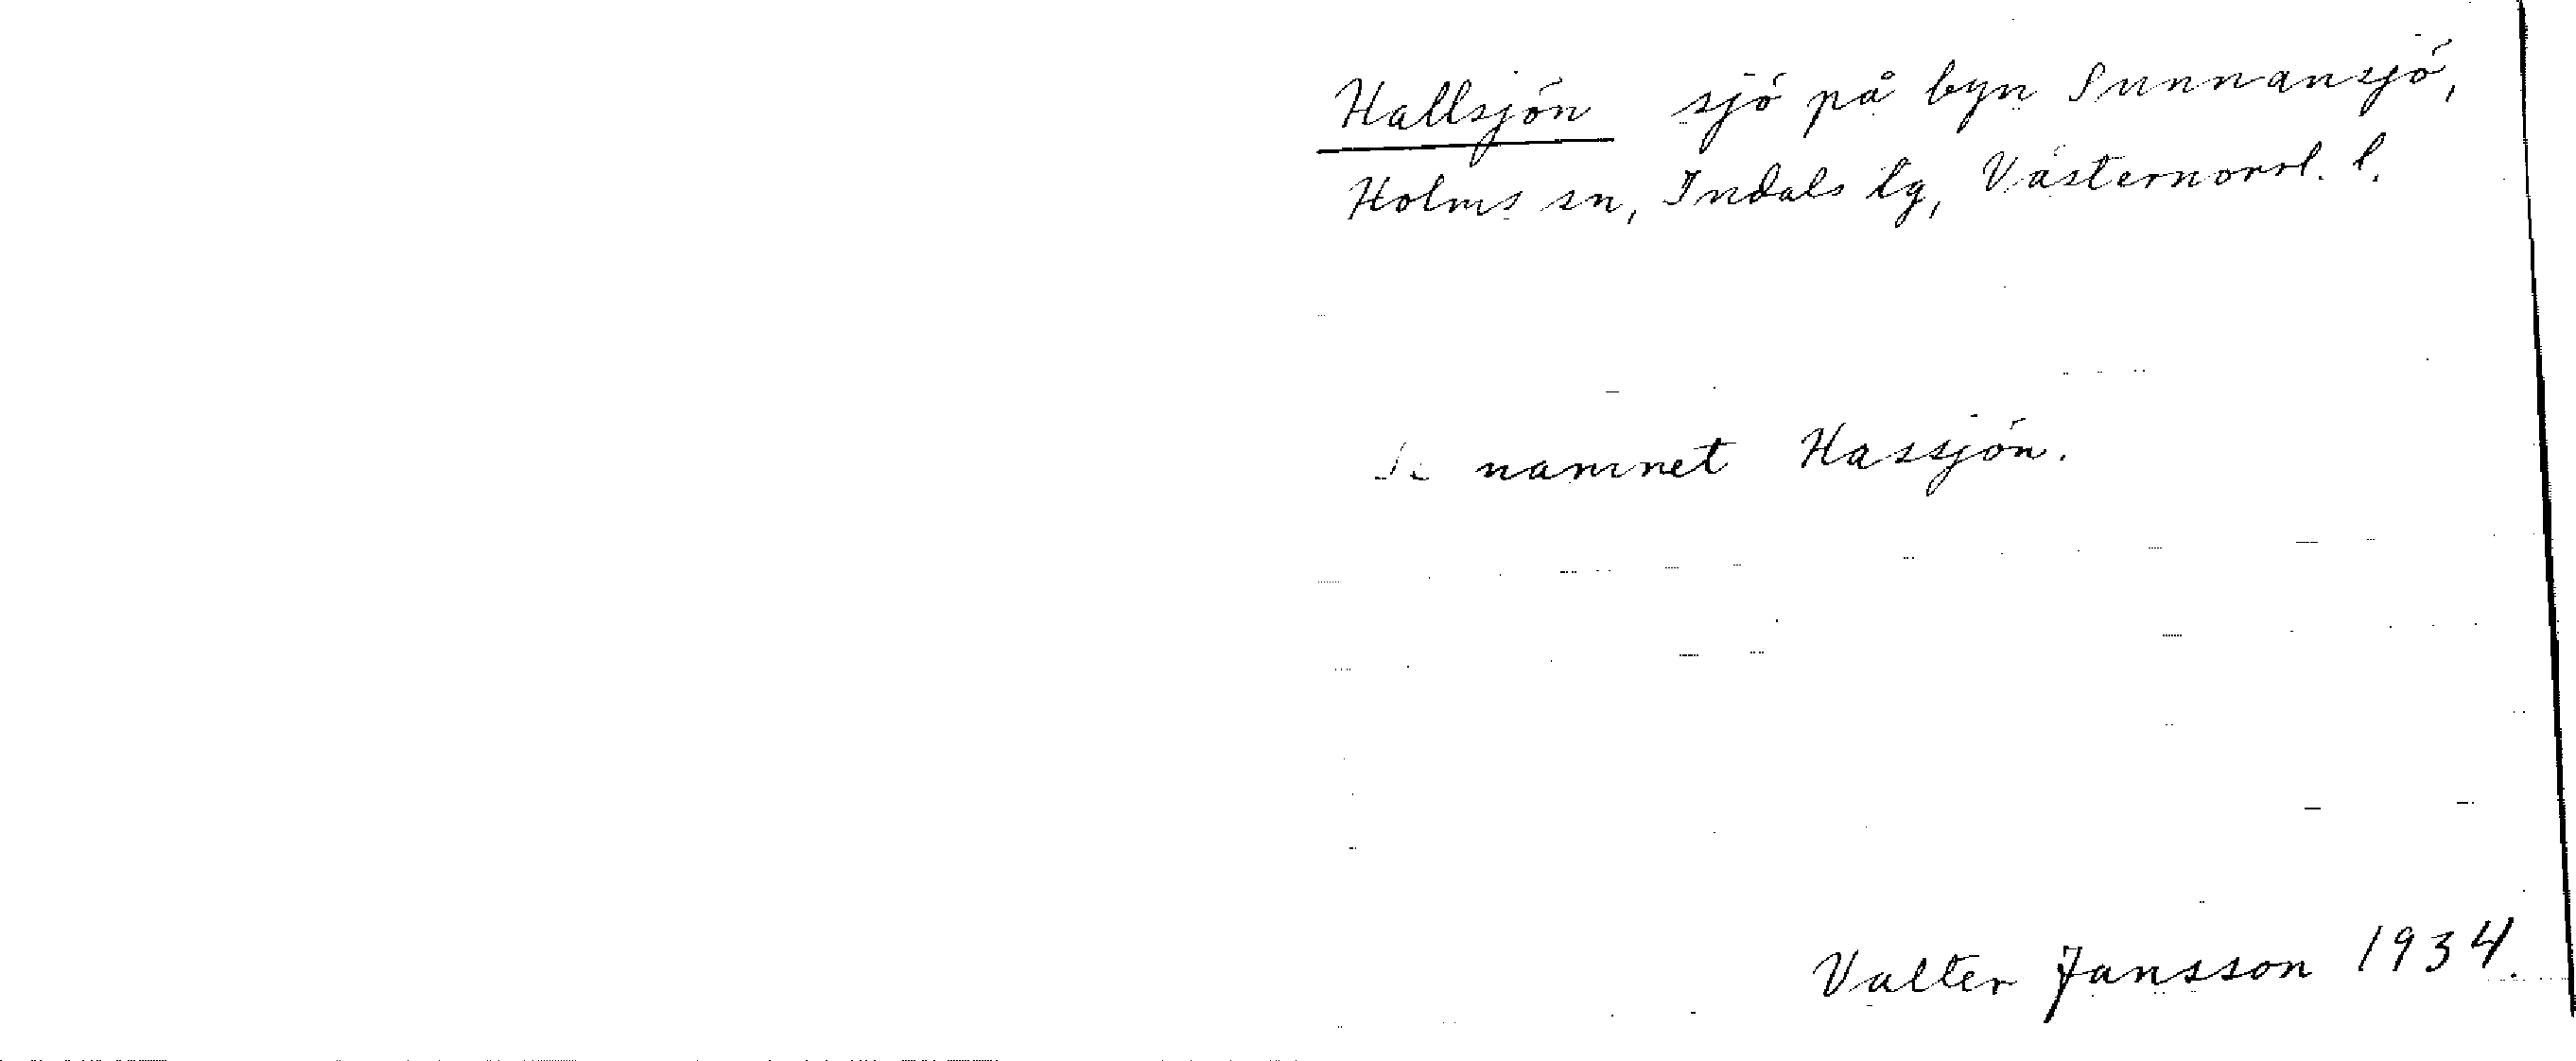 Hallsjön sjö på byn Sunnansjö,
Holms sn, Indals tg, Västernorrl. l.
Se namnet Hassjön.
Valter Jansson 1934.